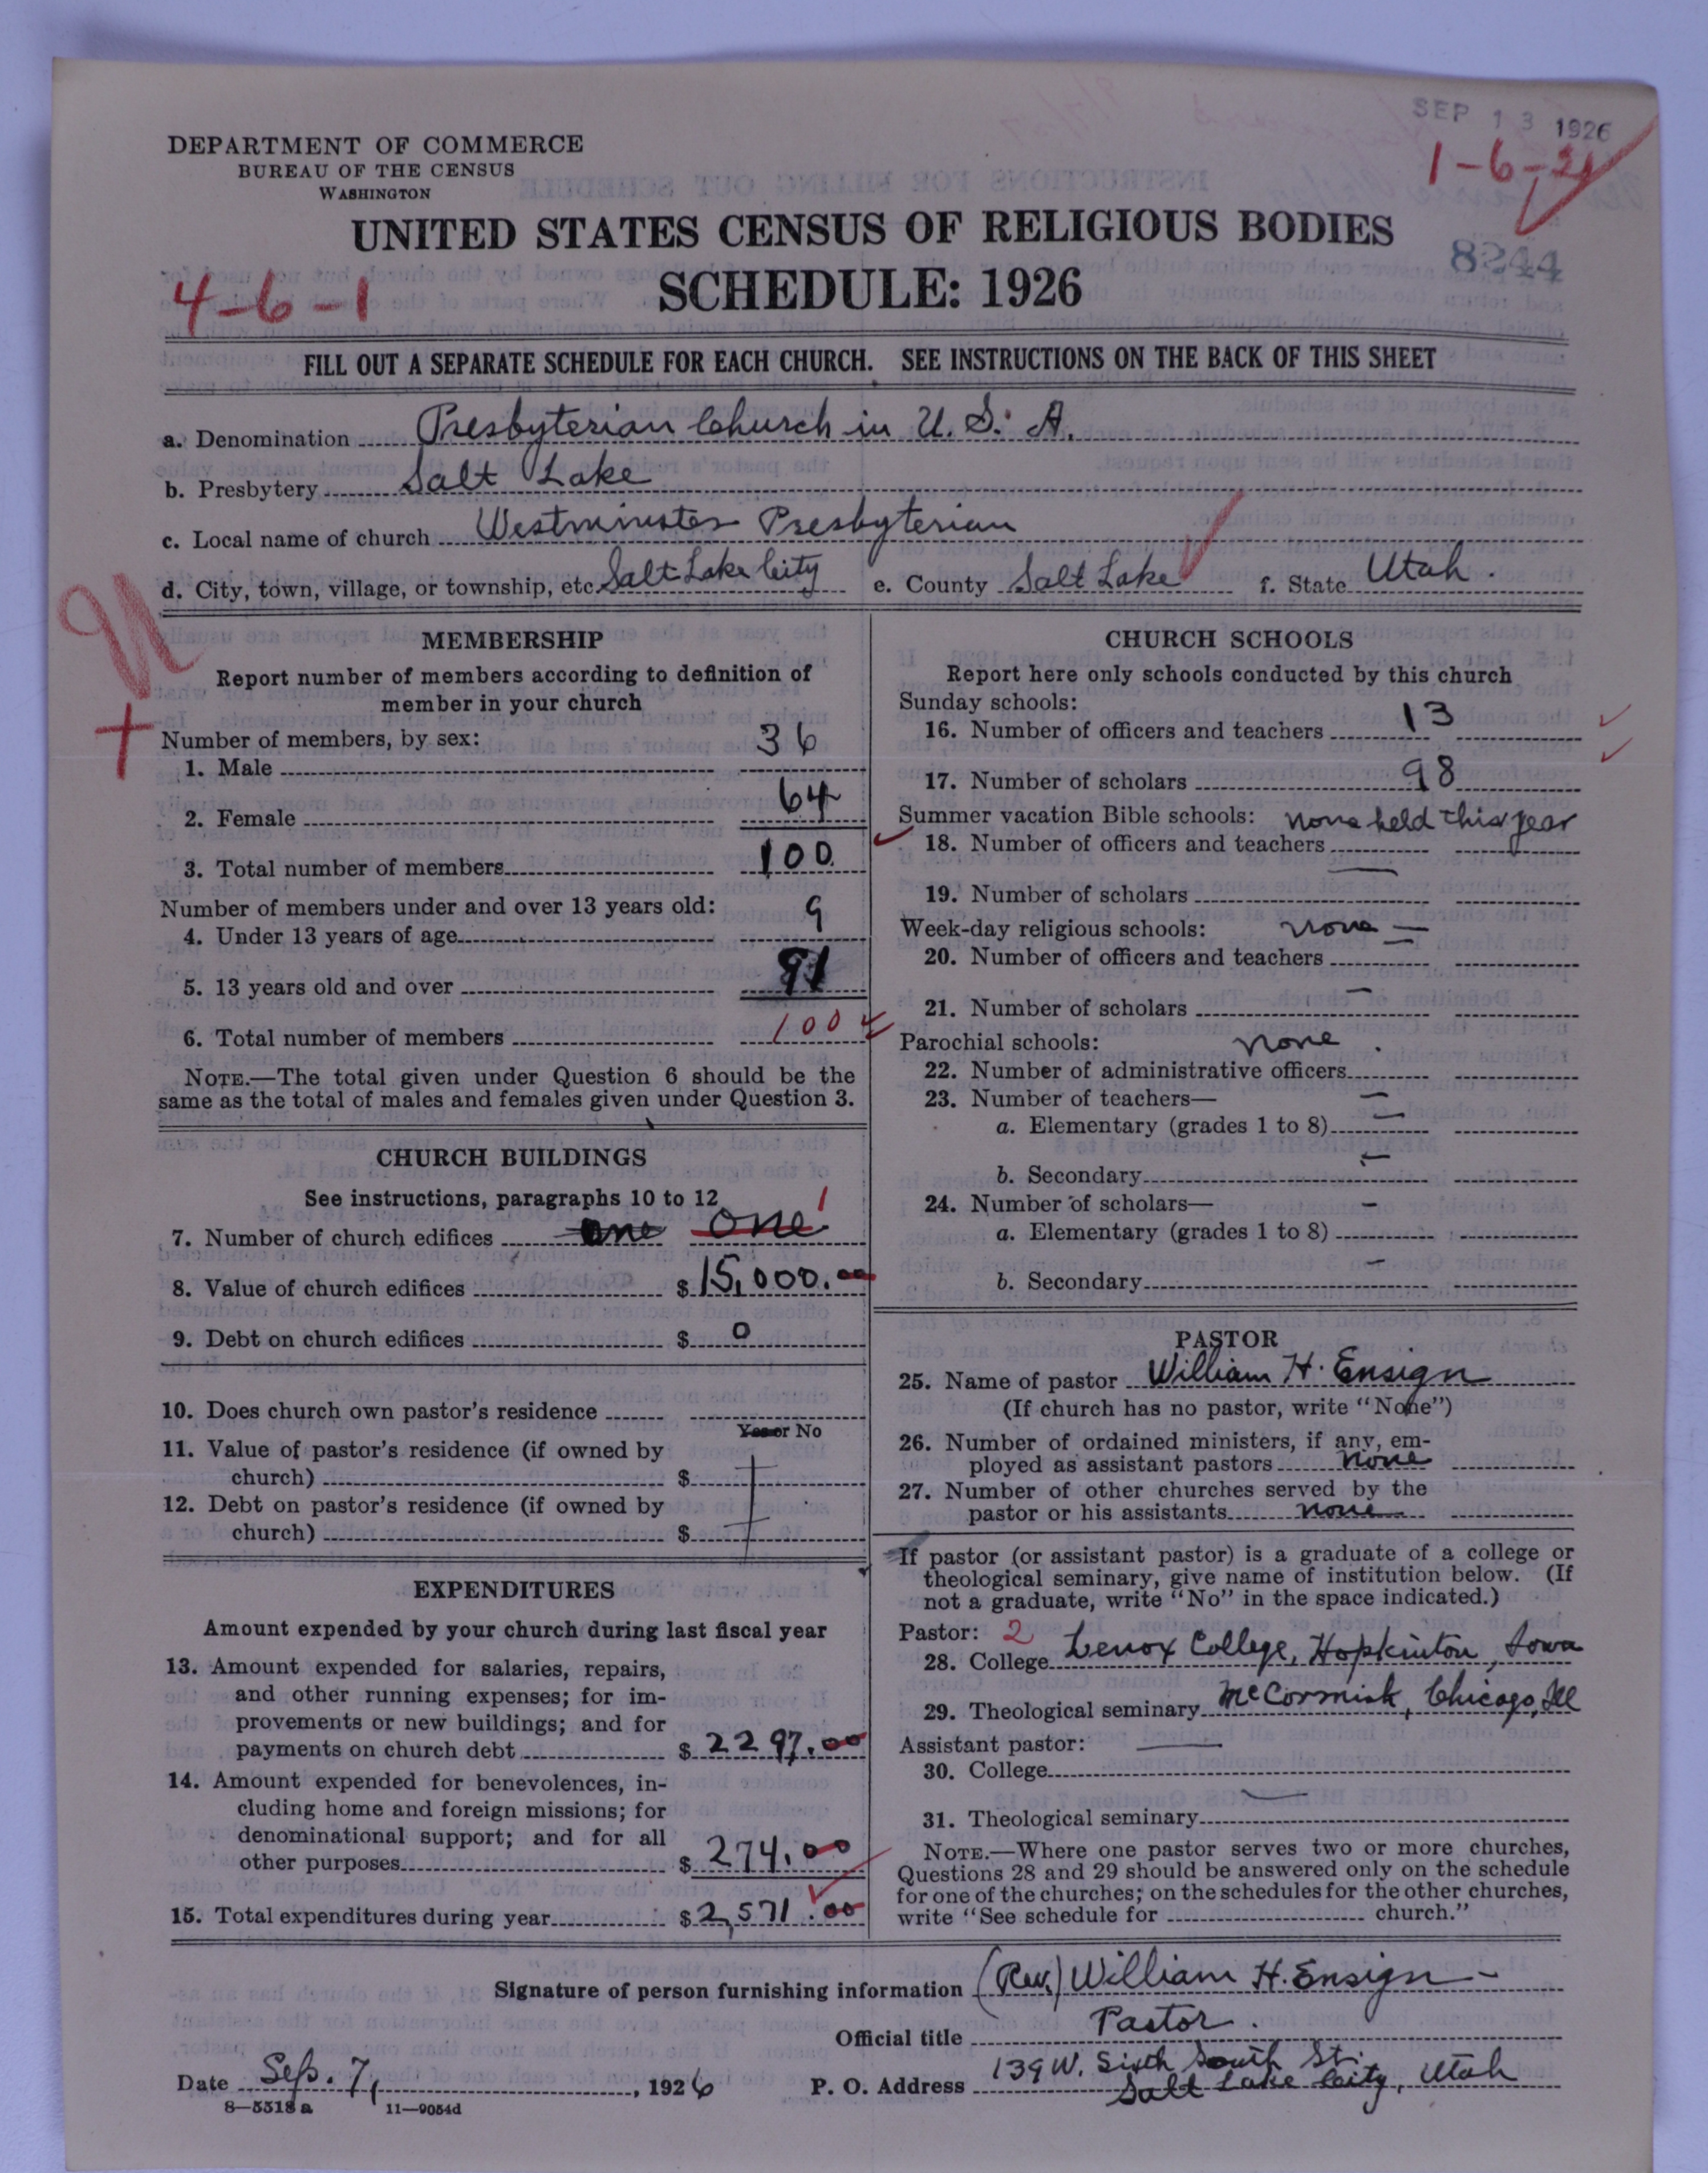 SEP 13 1926
DEPARTMENT OF COMMERCE
BUREAU OF THE CENSUS
WASHINGTON
1-6-21
UNITED STATES CENSUS OF RELIGIOUS BODIES
8244
SCHEDULE: 1926
4-6-1
FILL OUT A SEPARATE SCHEDULE FOR EACH CHURCH. SEE INSTRUCTIONS ON THE BACK OF THIS SHEET
a. Denomination Presbyterian Church in U. S. A.
b. Presbytery Salt Lake
c. Local name of church Westminster Presbyterian
d. City, town, village, or township, etc. Salt Lake City e. County Salt Lake f. State Utah.
MEMBERSHIP
Report number of members according to definition of
member in your church
Number of members, by sex:
1. Male 36
2. Female 64
3. Total number of members 100
Number of members under and over 13 years old:
4. Under 13 years of age 9
5. 13 years old and over 91
6. Total number of members 100
NOTE.—The total given under Question 6 should be the
same as the total of males and females given under Question 3.
CHURCH BUILDINGS
See instructions, paragraphs 10 to 12
7. Number of church edifices one one 1
8. Value of church edifices $ 15,000.00
9. Debt on church edifices $ 0
10. Does church own pastor's residence
Yes or No
11. Value of pastor's residence (if owned by
church) $
12. Debt on pastor's residence (if owned by
church) $
EXPENDITURES
Amount expended by your church during last fiscal year
13. Amount expended for salaries, repairs,
and other running expenses; for im-
provements or new buildings; and for
payments on church debt $ 2297.00
14. Amount expended for benevolences, in-
cluding home and foreign missions; for
denominational support; and for all
other purposes $ 274.00
15. Total expenditures during year $ 2,571.00
CHURCH SCHOOLS
Report here only schools conducted by this church
Sunday schools:
16. Number of officers and teachers 13
17. Number of scholars 98
Summer vacation Bible schools: none held this year
18. Number of officers and teachers
19. Number of scholars
Week-day religious schools: none —
20. Number of officers and teachers —
21. Number of scholars —
Parochial schools: none.
22. Number of administrative officers
23. Number of teachers— —
a. Elementary (grades 1 to 8) —
b. Secondary —
24. Number of scholars— —
a. Elementary (grades 1 to 8)
b. Secondary —
PASTOR
25. Name of pastor William H. Ensign
(If church has no pastor, write "None")
26. Number of ordained ministers, if any, em-
ployed as assistant pastors none
27. Number of other churches served by the
pastor or his assistants none
If pastor (or assistant pastor) is a graduate of a college or
theological seminary, give name of institution below. (If
not a graduate, write "No" in the space indicated.)
Pastor: 2
28. College Lenox College, Hopkinton, Iowa
29. Theological seminary McCormick, Chicago, Ill
Assistant pastor: —
30. College
31. Theological seminary —
NOTE.—Where one pastor serves two or more churches,
Questions 28 and 29 should be answered only on the schedule
for one of the churches; on the schedules for the other churches,
write "See schedule for church."
Signature of person furnishing information (Rev.) William H. Ensign
Official title Pastor.
Date Sep. 7, 1926 P. O. Address 139 W. Sixth South St.
Salt Lake City, Utah
8—5518a 11—9054d